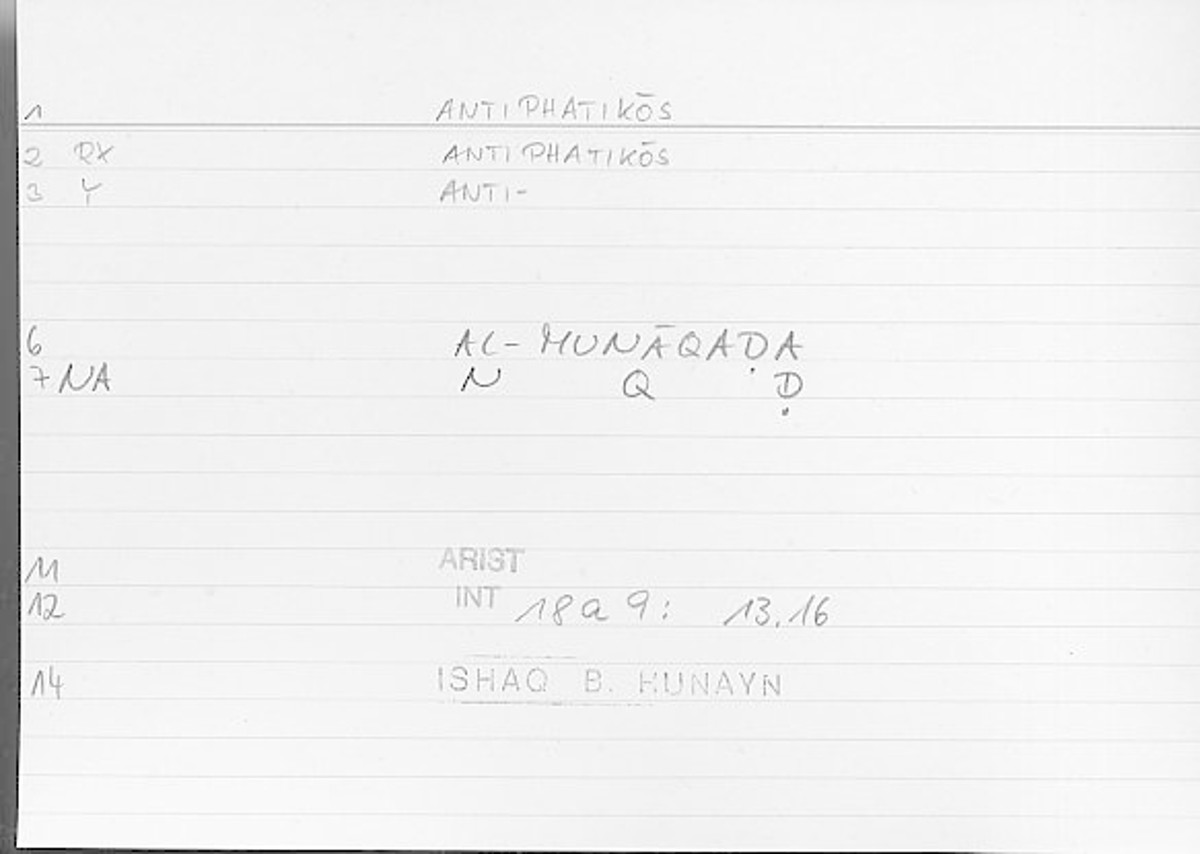 1 ANTIPHATIKŌS
2 RX ANTIPHATIKŌS
3 Y ANTI-
6 AL-MUNĀQAḌA
7 NA N Q Ḍ
11 ARIST
12 INT 18 a 9: 13.16
14 ISHAQ B. HUNAYN